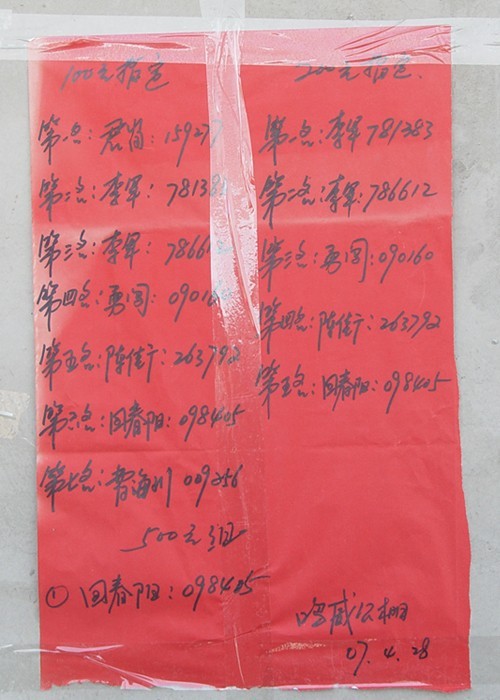 100元指定
第一名：君茵：15927
第二名：李军：78138
第三名：李军：78661
第四名：勇闯：0901
第五名：陈佳广：263792
第六名：回春阳：098405
第七名：曹海川 009256
500元组
① 回春阳：098405
200元指定.
第一名：李军 781383
第二名：李军：786612
第三名：勇闯：090160
第四名：陈佳广：263792
第五名：回春阳：098405
哈威公棚
07.4.28